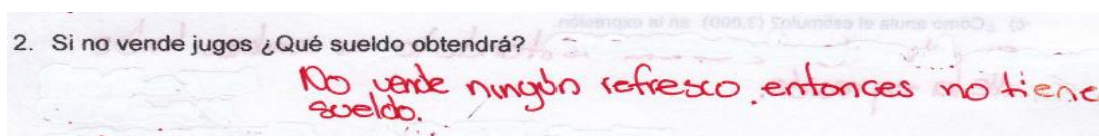 2. Si no vende jugos ¿Qué sueldo obtendrá?
No vende ningún refresco. entonces no tiene
sueldo.